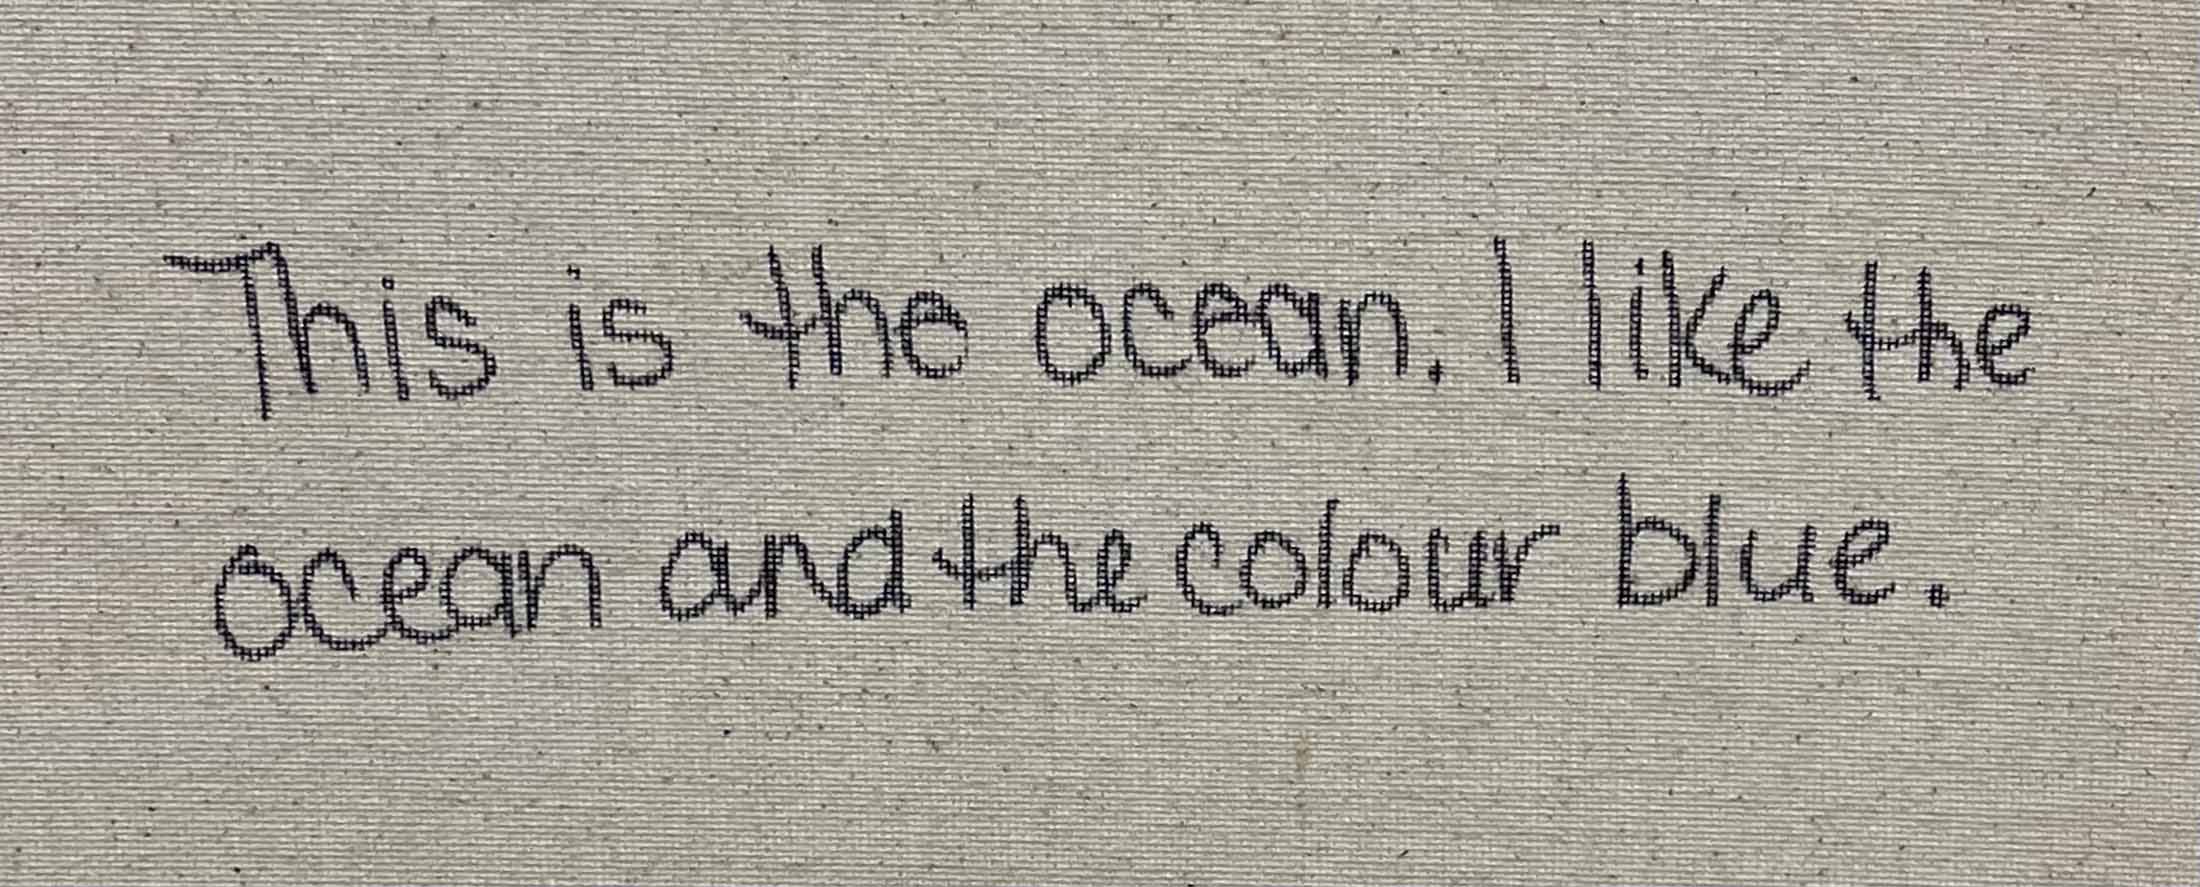 This is the ocean. I like the
ocean and the colour blue.